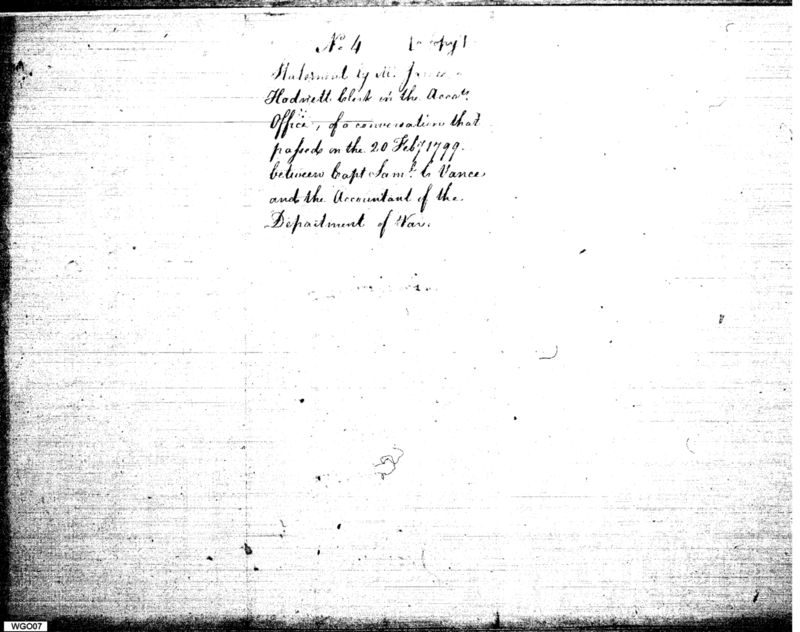 No. 4 [Copy]
Statement by Mr. James
Hodnett Clerk in the Accots.
Office, of a conversation that
passed on the 20 Feby 1799.
between Capt Saml. C Vance
and the Accountant of the
Department of War.
WGO07